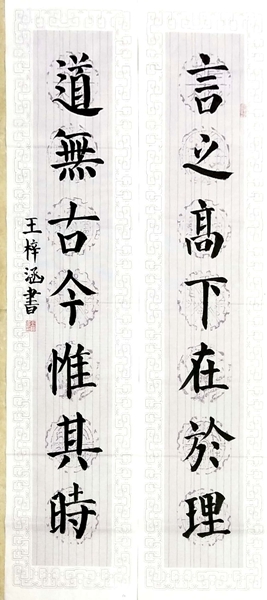 言之髙下在於理
道無古今惟其時
王梓涵書